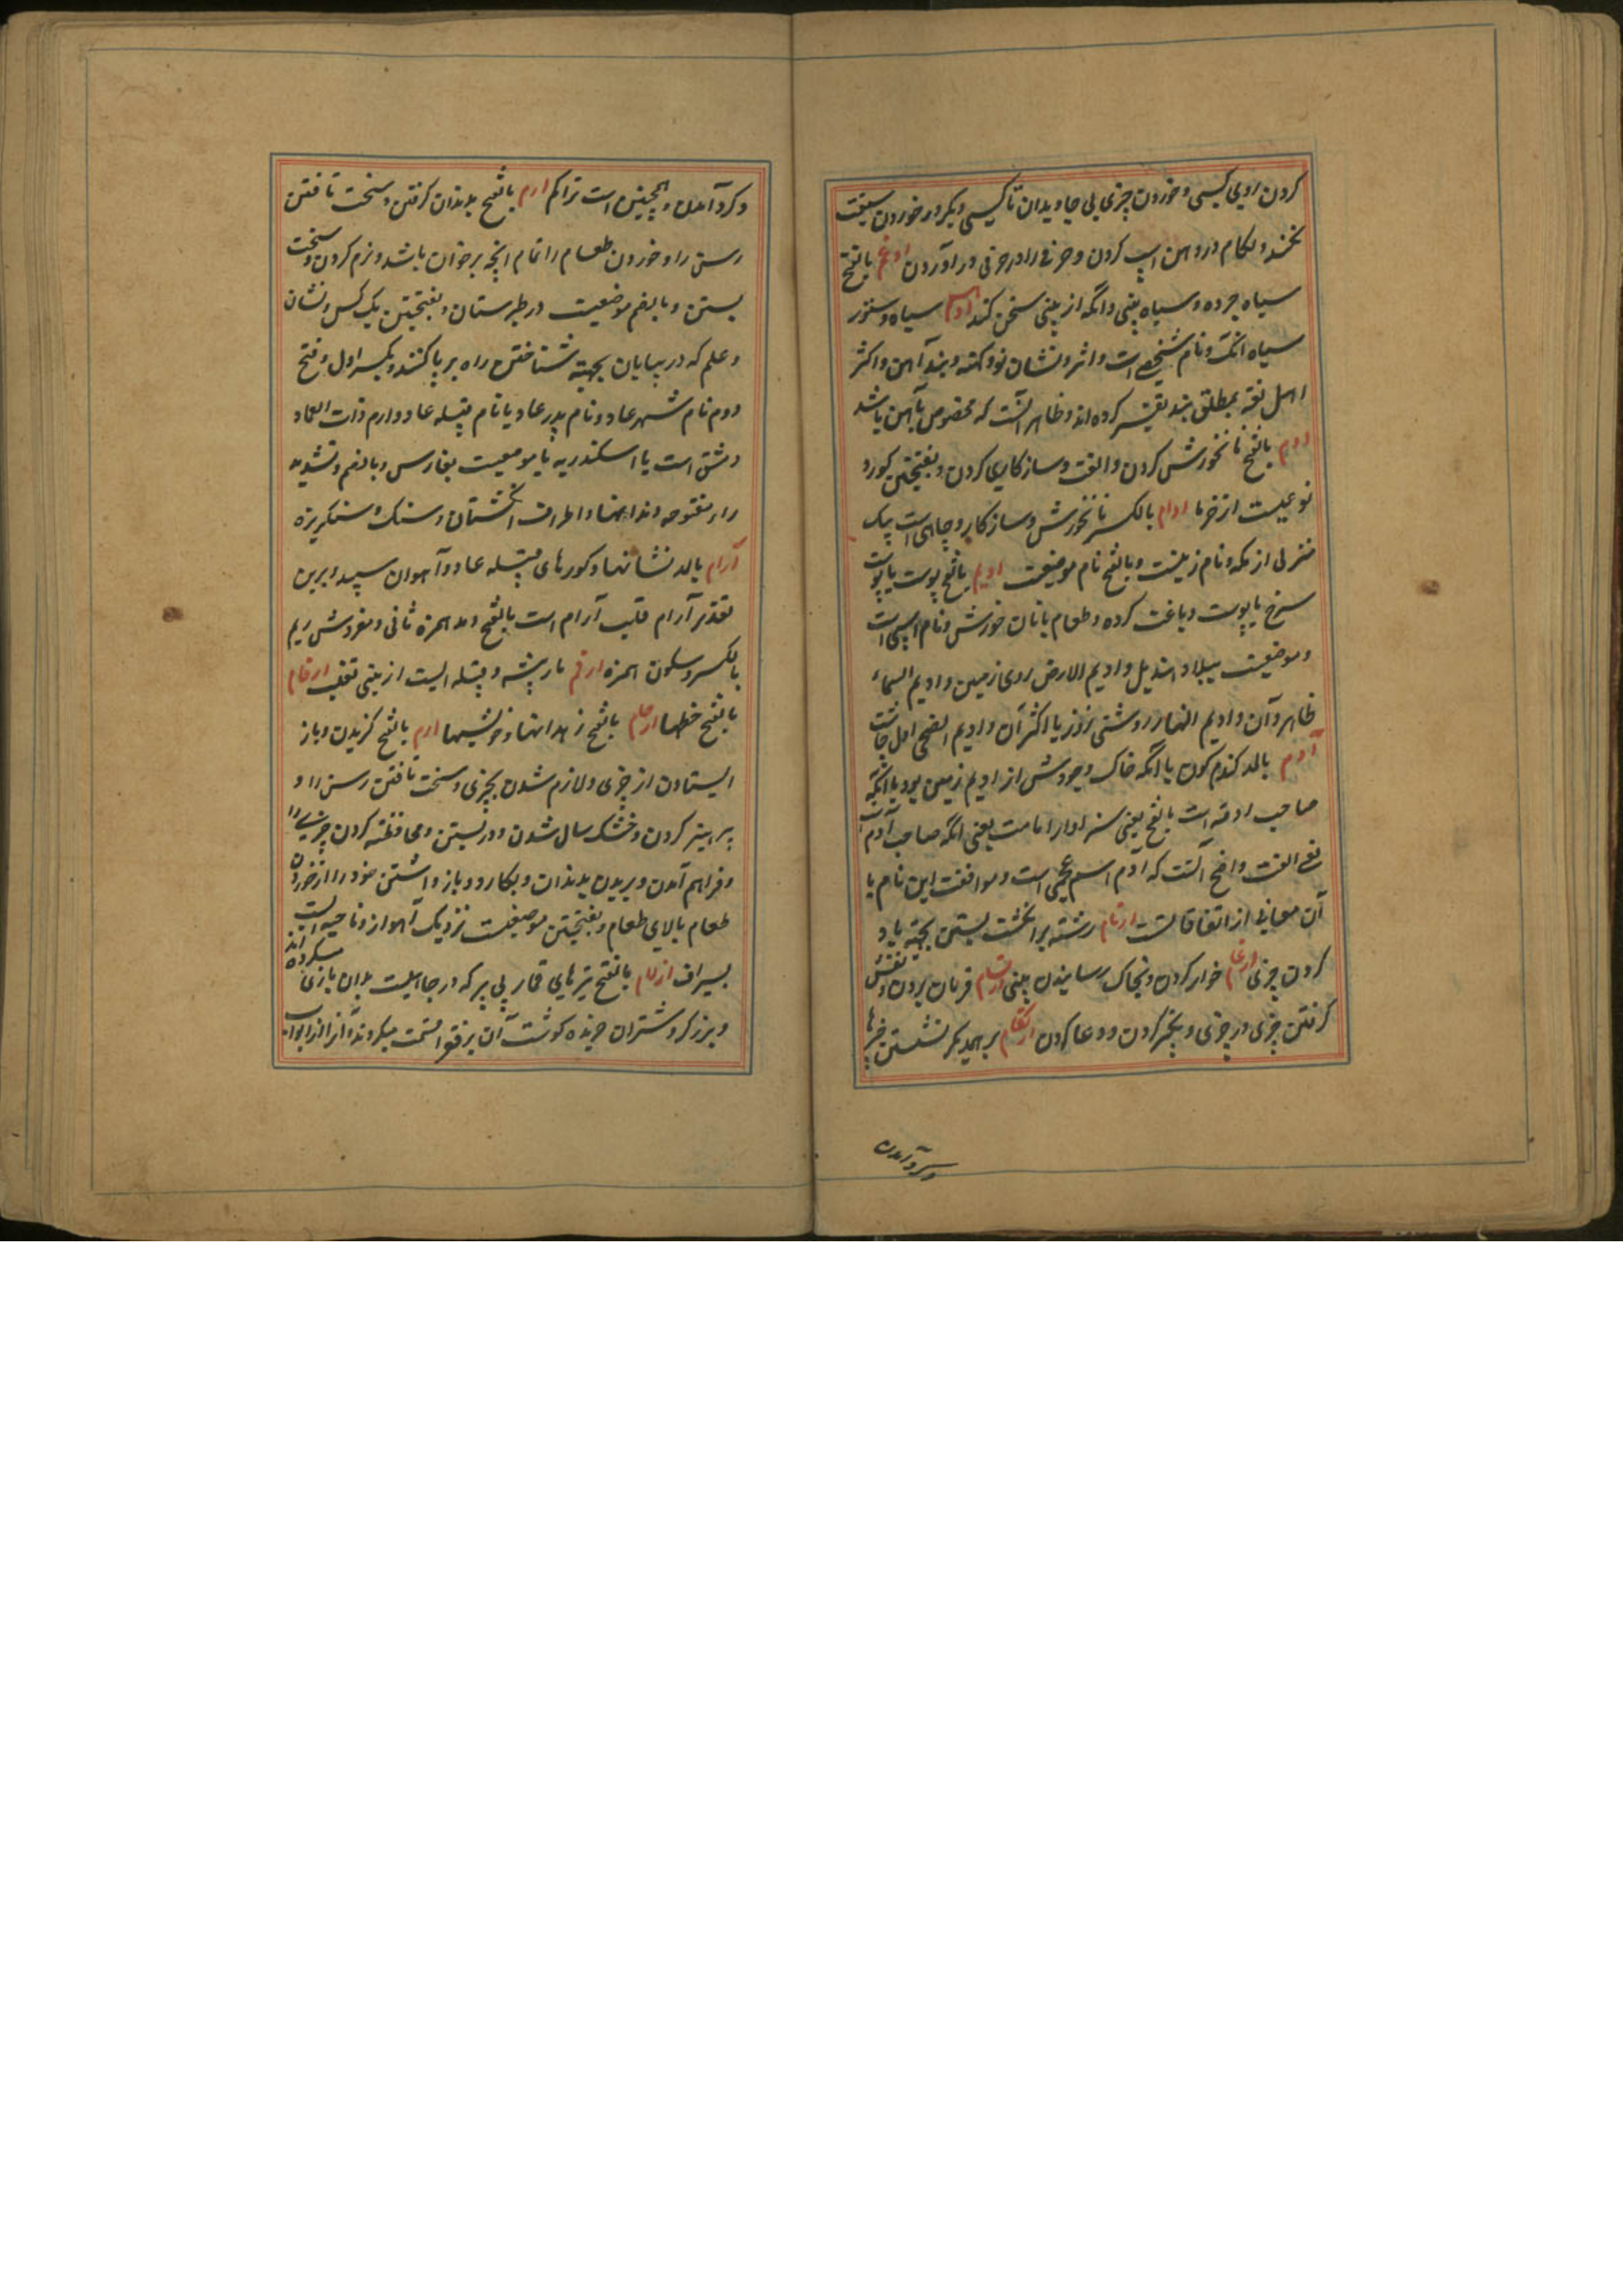 کردن روی کسی و خوردن چیزی بی جاویدن تا کسی دیگر در خوردن سبقت
نکند و لکام در دهن اسپ کردن و حرفی را در حرفی در آوردن ادغم بالفتح
سیاه چرده و سیاه بینی و آنکه از بینی سخن کند ادهم سیاه و ستور
سیاه رنک و نام شخصی است و اثر و نشان نو و کهنه و بند آهن و اکثر
اهل لغة بمطلق بند تفسیر کرده اند و ظاهر آنست که مخصوص بآهن باشد
ادم بالفتح نانخورش کردن و الفت و سازکاری کردن و بفتحتین کور و
نوعیست از خرما ادام بالکسر نانخورش و سازکار و چاهی است بیک
منزلی از مکه و نام زنیست و بالفتح نام موضعیست ادیم بالفتح پوست یا پوست
سرخ یا پوست دباغت کرده و طعام با نان خورش و نام اسپی است
و موضعیست ببلاد هذیل و ادیم الارض روی زمین و ادیم السماء
ظاهر آن و ادیم النهار روشنی روز یا اکثر آن و ادیم الضحی اول چاشت
آدم بالمد کندم کون یا آنکه خاک وجودش از ادیم زمین بود یا آنکه
صاحب ادمه است بالفتح یعنی سزاوار امامت یعنی آنکه صاحب آدم است
یعنی الفت واضح آنست که آدم اسم عجمی است و موافقت این نام با
آن معانی از اتفاقاتست ارتام رشته بر انکشت بستن بجهة یاد
کردن چیزی ارغام خوار کردن و بخاک رسانیدن بینی ارتسام فرمان بردن و نقش
کرفتن چیزی در چیزی و تکبیر کردن و دعا کردن ارتکام بر همدیکر نشستن چیزها
و کرد آمدن
و کرد آمدن و همچنین است تراکم ارم بالفتح بدندان کرفتن و سخت تافتن
رسن را و خوردن طعام را تمام آنچه بر خوان باشد و نرم کردن و سخت
بستن و بالضم موضعیست در طبرستان و بفتحتین یک کس و نشان
و علم که در بیابان بجهة شناختن راه بر پا کنند و بکسر اول و فتح
دوم نام شهر عاد و نام پدر عاد یا نام قبیله عاد و ارم ذات العماد
دمشق است یا اسکندریه یا موضعیست بفارس و بالضم و تشدید
راء مفتوحه دندانها و اطراف انکشتان و سنک و سنکریزه
آرام بالمد نشانها و کورهای قبیله عاد و آهوان سپید و برین
تقدیر آرام قلب أرام است بالفتح و مد همزه ثانی و مفردش ریم
بالکسر و سکون همزه ارقم مار پیشه و قبیله ایست از بنی تغلب ارقام
بالفتح خطها ارحام بالفتح زهدانها و خویشیها ازم بالفتح کزیدن و باز
ایستادن از چیزی و لازم شدن بچیزی و سخت تافتن رسن را و
پرهیز کردن و خشک سال شدن و در بستن و محافظه کردن چیزی را
و فراهم آمدن و بریدن بدندان و بکارد و باز داشتن خود را از خوردن
طعام بالای طعام و بفتحتین موضعیست نزدیک اهواز و ناحیه ایست
بسیراف ازلام بالفتح تیرهای قمار بی پر که در جاهلیت بدان بازی میکرده اند
و بزرک و شتران خریده کوشت آن برفقوا قسمت میکردند و آنرا از ابواب